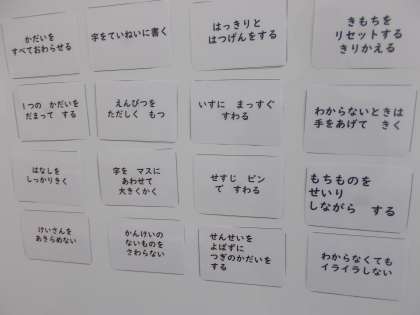 かだいを
すべておわらせる
字をていねいに書く
はっきりと
はつげんをする
きもちを
リセットする
きりかえる
1つの かだいを
だまって する
えんぴつを
ただしく もつ
いすに まっすぐ
すわる
わからないときは
手をあげて きく
はなしを
しっかりきく
字を マスに
あわせて
大きくかく
せすじ ピン
で すわる
もちものを
せいり
しながら する
けいさんを
あきらめない
かんけいの
ないものを
さわらない
せんせいを
よばずに
つぎのかだいを
する
わからなくても
イライラしない